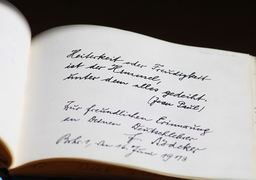 Heiterkeit oder Freudigkeit
ist der Himmel,
unter dem alles gedeiht.
(Jean Paul)
Zur freundlichen Erinnerung
an Deinen Deutschlehrer
F.
den 16. Juni 1978